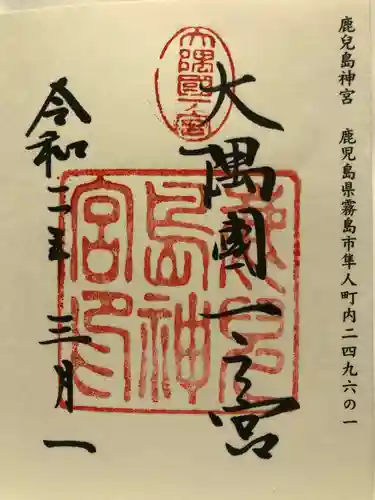 鹿兒島神宮　鹿児島県霧島市隼人町内二四九六の一
大隅國一之宮
大隅國一ノ宮
鹿兒島神宮印
令和二年三月一